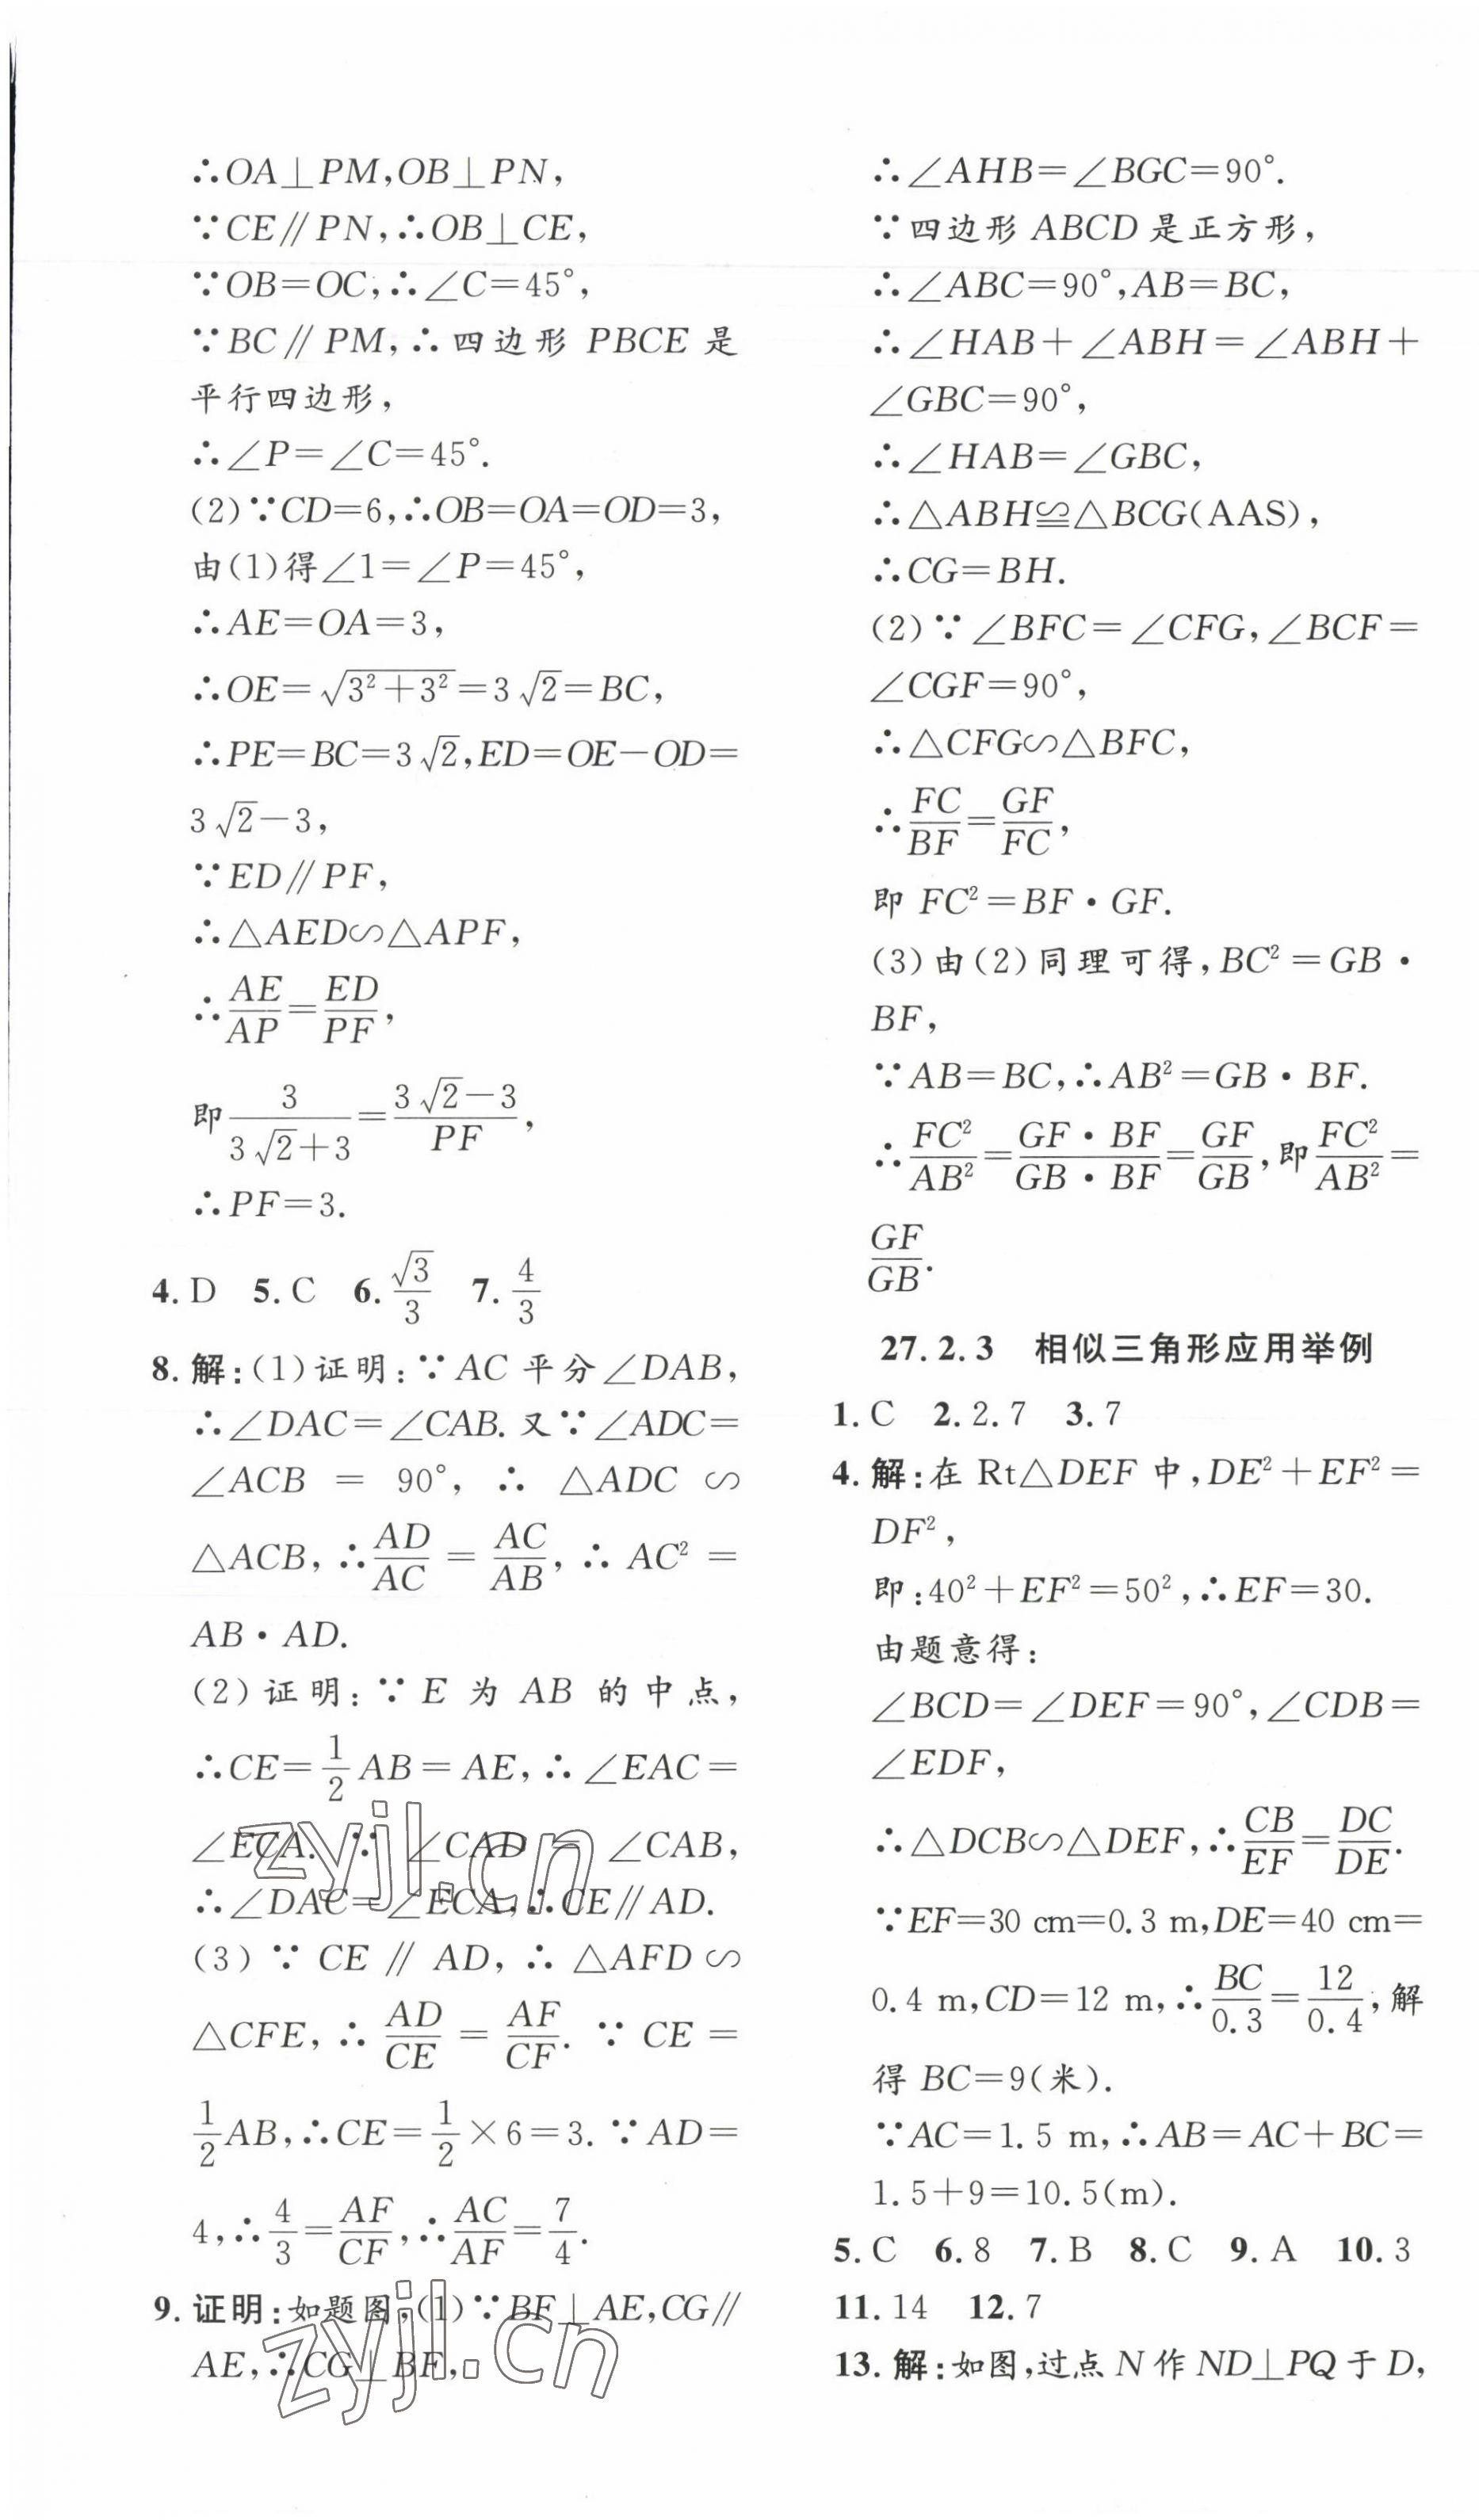 ∴OA⊥PM,OB⊥PN,
∵CE∥PN,∴OB⊥CE,
∵OB=OC,∴∠C=45°,
∵BC∥PM,∴四边形 PBCE 是
平行四边形,
∴∠P=∠C=45°.
(2)∵CD=6,∴OB=OA=OD=3,
由(1)得∠1=∠P=45°,
∴AE=OA=3,
∴OE=√(3²+3²)=3√2=BC,
∴PE=BC=3√2,ED=OE-OD=
3√2-3,
∵ED∥PF,
∴△AED∽△APF,
∴AE/AP=ED/PF,
即3/(3√2+3)=(3√2-3)/PF,
∴PF=3.
4. D 5. C 6. √3/3 7. 4/3
8. 解:(1)证明:∵AC 平分∠DAB,
∴∠DAC=∠CAB. 又∵∠ADC=
∠ACB = 90°, ∴ △ADC ∽
△ACB, ∴AD/AC = AC/AB, ∴ AC² =
AB·AD.
(2)证明:∵E 为 AB 的中点,
∴CE=1/2AB=AE,∴∠EAC=
∠ECA. ∵ ∠CAD = ∠CAB,
∴∠DAC=∠ECA,∴CE∥AD.
(3)∵ CE ∥ AD, ∴ △AFD ∽
△CFE, ∴ AD/CE = AF/CF. ∵ CE =
1/2AB,∴CE=1/2×6=3. ∵AD=
4,∴4/3=AF/CF,∴AC/AF=7/4.
9. 证明:如题图,(1)∵BF⊥AE,CG∥
AE,∴CG⊥BF,
∴∠AHB=∠BGC=90°.
∵四边形 ABCD 是正方形,
∴∠ABC=90°,AB=BC,
∴∠HAB+∠ABH=∠ABH+
∠GBC=90°,
∴∠HAB=∠GBC,
∴△ABH≌△BCG(AAS),
∴CG=BH.
(2)∵∠BFC=∠CFG,∠BCF=
∠CGF=90°,
∴△CFG∽△BFC,
∴FC/BF=GF/FC,
即 FC²=BF·GF.
(3)由(2)同理可得,BC²=GB·
BF,
∵AB=BC,∴AB²=GB·BF.
∴FC²/AB²=GF·BF/GB·BF=GF/GB,即FC²/AB²=
GF/GB.
27.2.3 相似三角形应用举例
1. C 2. 2.7 3. 7
4. 解:在 Rt△DEF 中,DE²+EF²=
DF²,
即:40²+EF²=50²,∴EF=30.
由题意得:
∠BCD=∠DEF=90°,∠CDB=
∠EDF,
∴△DCB∽△DEF,∴CB/EF=DC/DE.
∵EF=30 cm=0.3 m,DE=40 cm=
0.4 m,CD=12 m,∴BC/0.3=12/0.4,解
得 BC=9(米).
∵AC=1.5 m,∴AB=AC+BC=
1.5+9=10.5(m).
5. C 6. 8 7. B 8. C 9. A 10. 3
11. 14 12. 7
13. 解:如图,过点 N 作 ND⊥PQ 于 D,
zyjl.cn
zyjl.cn